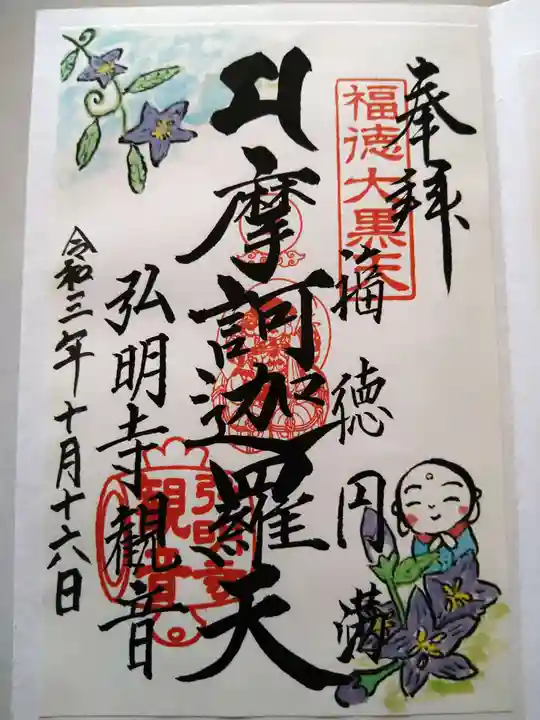 奉拝
福徳大黒天
福徳円満
摩訶迦羅天
弘明寺觀音
弘明寺
觀音
令和三年十月十六日